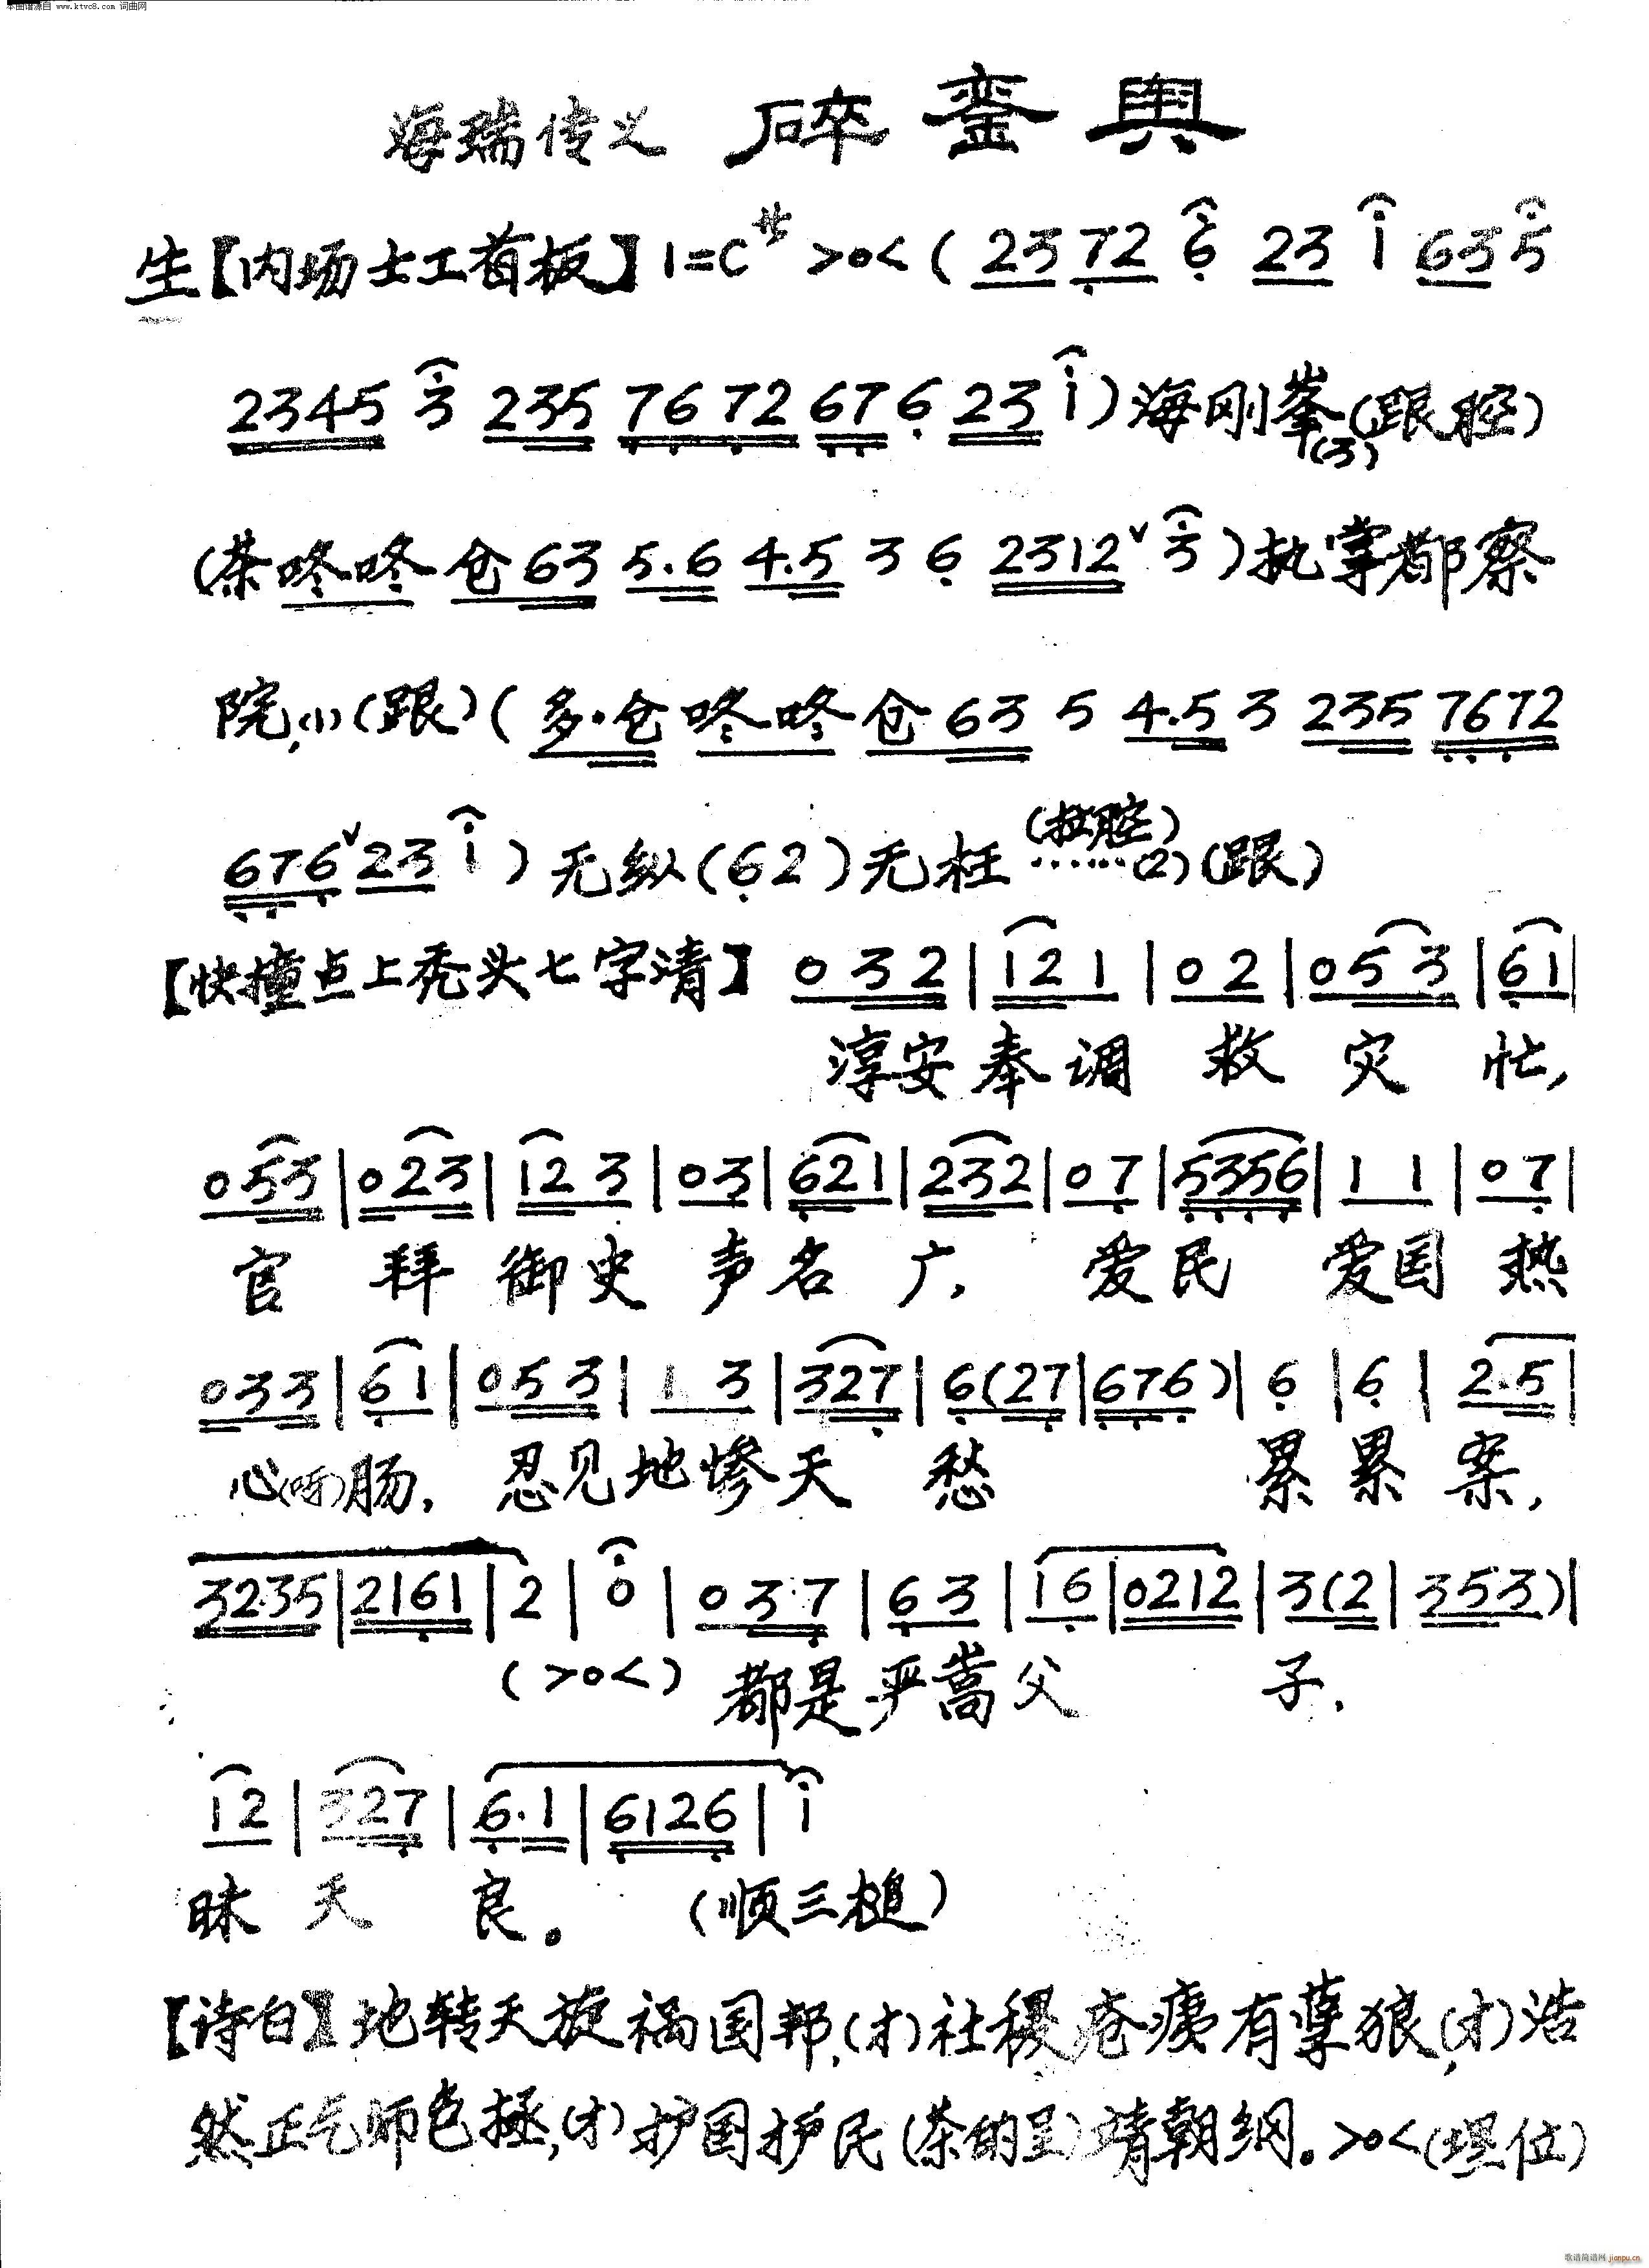 本曲谱源自 www.ktvc8.com 词曲网
海瑞传义 碎銮舆
生【内场士工首板】1=C サ >0< ( 2372 6 23 i 635
2345 3 235 7672 676 23 i ) 海刚峯(3)(跟腔)
(茶咚咚仓63 5.6 4.5 3 6 2312ˇ3 ) 执掌都察
院,(1)(跟)(多·仓 咚咚 仓63 5 4.5 3 235 7672
676ˇ23 i ) 无纵(62)无枉(拉腔)……(2)(跟)
【快撞点上秃头七字清】 0 32 | 12 1 | 0 2 | 053 | 61 |
淳安奉调救灾忙,
053 | 023 | 12 3 | 03 | 621 | 232 | 07 | 5356 | 1 1 | 07 |
官拜御史声名广,爱民爱国热
033 | 61 | 053 | 1 3 | 327 | 6(27 | 676) | 6 | 6 | 2.5 |
心(啊)肠,忍见地惨天愁累累案,
3235 | 2161 | 2 | 0 | 037 | 63 | 16 | 0212 | 3(2 | 353) |
(>0<) 都是严蒿父子,
12 | 327 | 6.1 | 6126 | i
昧天良。 (顺三槌)
【诗白】地转天旋祸国邦,(才)社稷疮痍有孽狼,(才)浩
然正气师包拯,(才)护国护民(茶的呈)靖朝纲。>0<(埋位)
歌谱简谱网 jianpu.cn